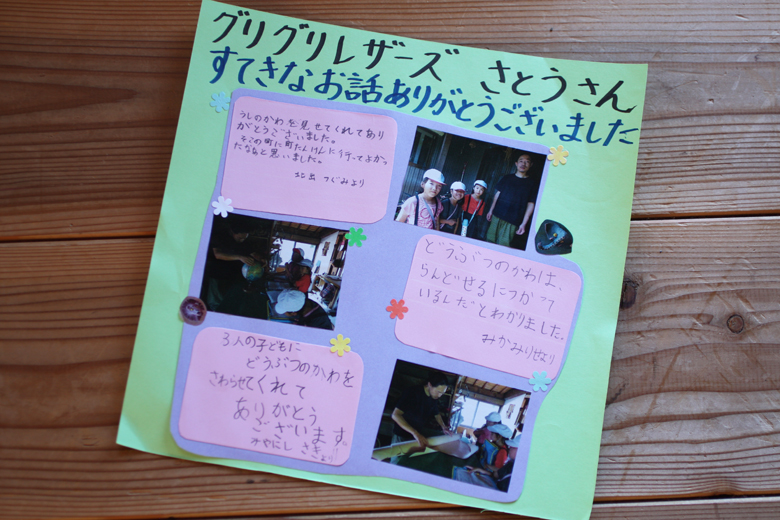 グリグリレザーズ さとうさん
すてきなお話ありがとうございました
うしのかわを見せてくれてあり
がとうございました。
そこの町に町たんけんに行ってよかっ
たなあと思いました。
つぐみより
どうぶつのかわは、
らんどせるにつかって
いるんだとわかりました。
みかみりせより
3人の子どもに
どうぶつのかわを
さわらせてくれて
ありがとう
ございます。
みやにし さきより